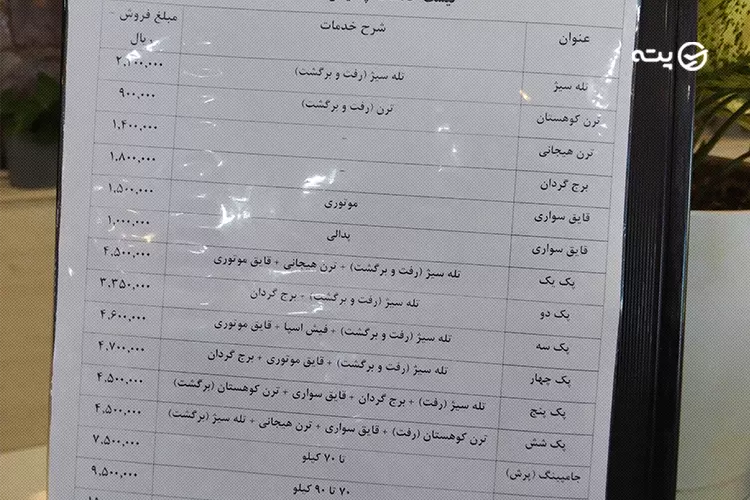 پته
عنوان شرح خدمات مبلغ فروش ریال
تله سیژ تله سیژ (رفت و برگشت) ۲،۱۰۰،۰۰۰
ترن کوهستان ترن (رفت و برگشت) ۹۰۰،۰۰۰
ترن هیجانی - ۱،۴۰۰،۰۰۰
برج گردان - ۱،۸۰۰،۰۰۰
قایق سواری موتوری ۱،۵۰۰،۰۰۰
قایق سواری پدالی ۱،۰۰۰،۰۰۰
پک یک تله سیژ (رفت و برگشت) + ترن هیجانی + قایق موتوری ۴،۵۰۰،۰۰۰
پک دو تله سیژ (رفت و برگشت) + برج گردان ۳،۳۵۰،۰۰۰
پک سه تله سیژ (رفت و برگشت) + فیش اسپا + قایق موتوری ۴،۶۰۰،۰۰۰
پک چهار تله سیژ (رفت و برگشت) + قایق موتوری + برج گردان ۴،۷۰۰،۰۰۰
پک پنج تله سیژ (رفت) + برج گردان + قایق سواری + ترن کوهستان (برگشت) ۴،۵۰۰،۰۰۰
پک شش ترن کوهستان (رفت) + قایق سواری + ترن هیجانی + تله سیژ (برگشت) ۴،۵۰۰،۰۰۰
جامپینگ (پرش) تا ۷۰ کیلو ۷،۵۰۰،۰۰۰
۷۰ تا ۹۰ کیلو ۹،۵۰۰،۰۰۰